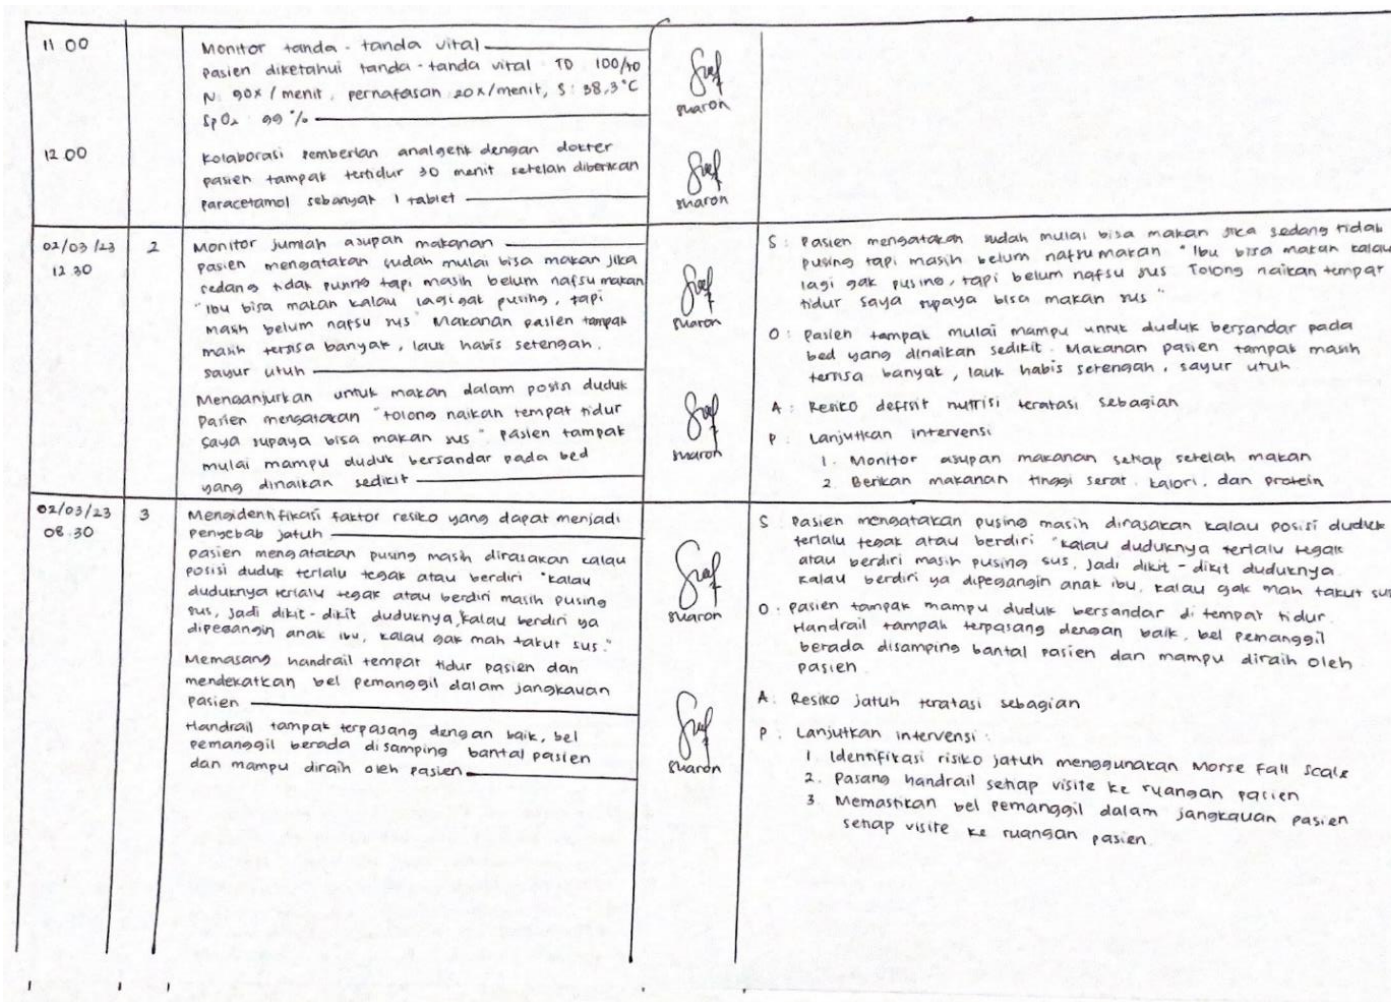 11.00
Monitor tanda-tanda vital
pasien diketahui tanda-tanda vital TD 100/70
N: 90x/menit, pernafasan 20x/menit, S: 38,3°C
SpO2 99 %
sharon
12.00
Kolaborasi pemberian analgetik dengan dokter
pasien tampak tertidur 30 menit setelah diberikan
paracetamol sebanyak 1 tablet
sharon
02/03/23
12.30
2
Monitor jumlah asupan makanan
pasien mengatakan sudah mulai bisa makan jika
sedang tidak pusing tapi masih belum nafsu makan
"Ibu bisa makan kalau lagi gak pusing, tapi
masih belum nafsu sus" Makanan pasien tampak
masih tersisa banyak, lauk habis setengah,
sayur utuh
sharon
Menganjurkan untuk makan dalam posisi duduk
Pasien mengatakan "tolong naikan tempat tidur
saya supaya bisa makan sus". pasien tampak
mulai mampu duduk bersandar pada bed
yang dinaikan sedikit
sharon
S: Pasien mengatakan sudah mulai bisa makan jika sedang tidak
pusing tapi masih belum nafsu makan "Ibu bisa makan kalau
lagi gak pusing, tapi belum nafsu sus Tolong naikan tempat
tidur saya supaya bisa makan sus"
O: Pasien tampak mulai mampu untuk duduk bersandar pada
bed yang dinaikan sedikit. Makanan pasien tampak masih
tersisa banyak, lauk habis setengah, sayur utuh
A: Resiko defisit nutrisi teratasi sebagian
P: Lanjutkan intervensi
1. Monitor asupan makanan setiap setelah makan
2. Berikan makanan tinggi serat, kalori, dan protein
02/03/23
08.30
3
Mengidentifikasi faktor resiko yang dapat menjadi
penyebab jatuh
pasien mengatakan pusing masih dirasakan kalau
posisi duduk terlalu tegak atau berdiri "kalau
duduknya terlalu tegak atau berdiri masih pusing
sus, jadi dikit-dikit duduknya, kalau berdiri ya
dipegangin anak ibu, kalau gak mah takut sus."
sharon
Memasang handrail tempat tidur pasien dan
mendekatkan bel pemanggil dalam jangkauan
pasien
Handrail tampak terpasang dengan baik, bel
pemanggil berada disamping bantal pasien
dan mampu diraih oleh pasien
sharon
S Pasien mengatakan pusing masih dirasakan kalau posisi duduk
terlalu tegak atau berdiri "kalau duduknya terlalu tegak
atau berdiri masih pusing sus, jadi dikit-dikit duduknya
kalau berdiri ya dipegangin anak ibu, kalau gak mah takut sus
O: pasien tampak mampu duduk bersandar di tempat tidur.
Handrail tampak terpasang dengan baik, bel pemanggil
berada disamping bantal pasien dan mampu diraih oleh
pasien
A: Resiko jatuh teratasi sebagian
P: Lanjutkan intervensi:
1. Identifikasi risiko jatuh menggunakan Morse Fall Scale
2. Pasang handrail setiap visite ke ruangan pasien
3. Memastikan bel pemanggil dalam jangkauan pasien
setiap visite ke ruangan pasien.